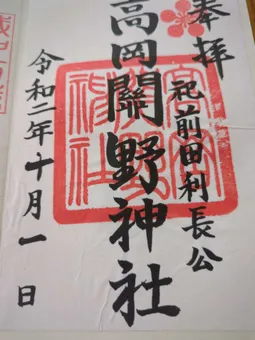 奉拝
祀前田利長公
高岡關野神社
令和二年十月一日